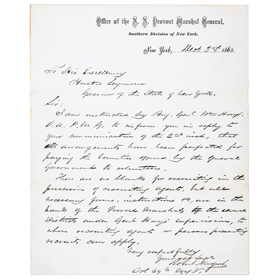 Office of the A. A. Provost Marshal General,
Southern Division of New York.
New York, Dec 3rd 1863
To His Excellency
Horatio Seymour
Governor of the State of New York
Sir,
I am instructed by Brig. Genl Wm Hays
A. A. P. M. G. to inform you in reply to
your communication of the 2nd inst, that
all arrangements have been perfected for
paying the bounties offered by the General
Government to volunteers.
There are no blanks for recruiting in the
possession of recruiting agents, but all
necessary forms, instructions &c, are in the
hands of the Provost Marshals of the several
districts under Genl Hays supervision, to
whom recruiting agents or persons presenting
recruits can apply.
Very respectfully
Your obt Servt
Robert Nugent
Col 69th Regt